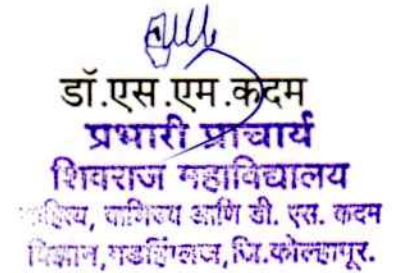 डॉ.एस.एम.कदम
प्रभारी प्राचार्य
शिवराज महाविद्यालय
वाणिज्य आणि डी. एस. कदम
विज्ञान,गडहिंग्लज,जि.कोल्हापूर.